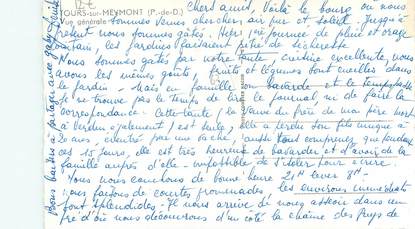 TOURS-sur-MEYMONT (P.-de-D.)
Vue générale
Chers amis, Voilà le bourg où nous
sommes venus chercher air pur et soleil. Jusqu'à
présent nous sommes gâtés. Hier 1ère journée de pluie et orage
les jardins faisaient pitié de sécheresse
Nous sommes gâtés par notre tante, cuisine excellente, nous
avons les mêmes goûts, fruits et légumes sont cueillis dans
le jardin. Mais en famille on bavarde et le temps passe
je ne trouve pas le temps de lire le journal, ni de faire la
correspondance. Cette tante (la veuve du frère de ma mère mort
à Verdun également) est seule, elle a perdu son fils unique à
20 ans, éventré par une vache, aussi vous comprenez que pendant
ces 15 jours, elle est très heureuse de bavarder et d'avoir de la
famille auprès d'elle - impossible de s'isoler pour écrire.
Nous nous couchons de bonne heure 21H lever 8H -
nous faisons de courtes promenades, les environs immédiats
sont splendides - Il nous arrive de nous asseoir dans un
pré d'où nous découvrons d'un côté la chaîne des Puys de
Bons baisers à partager avec